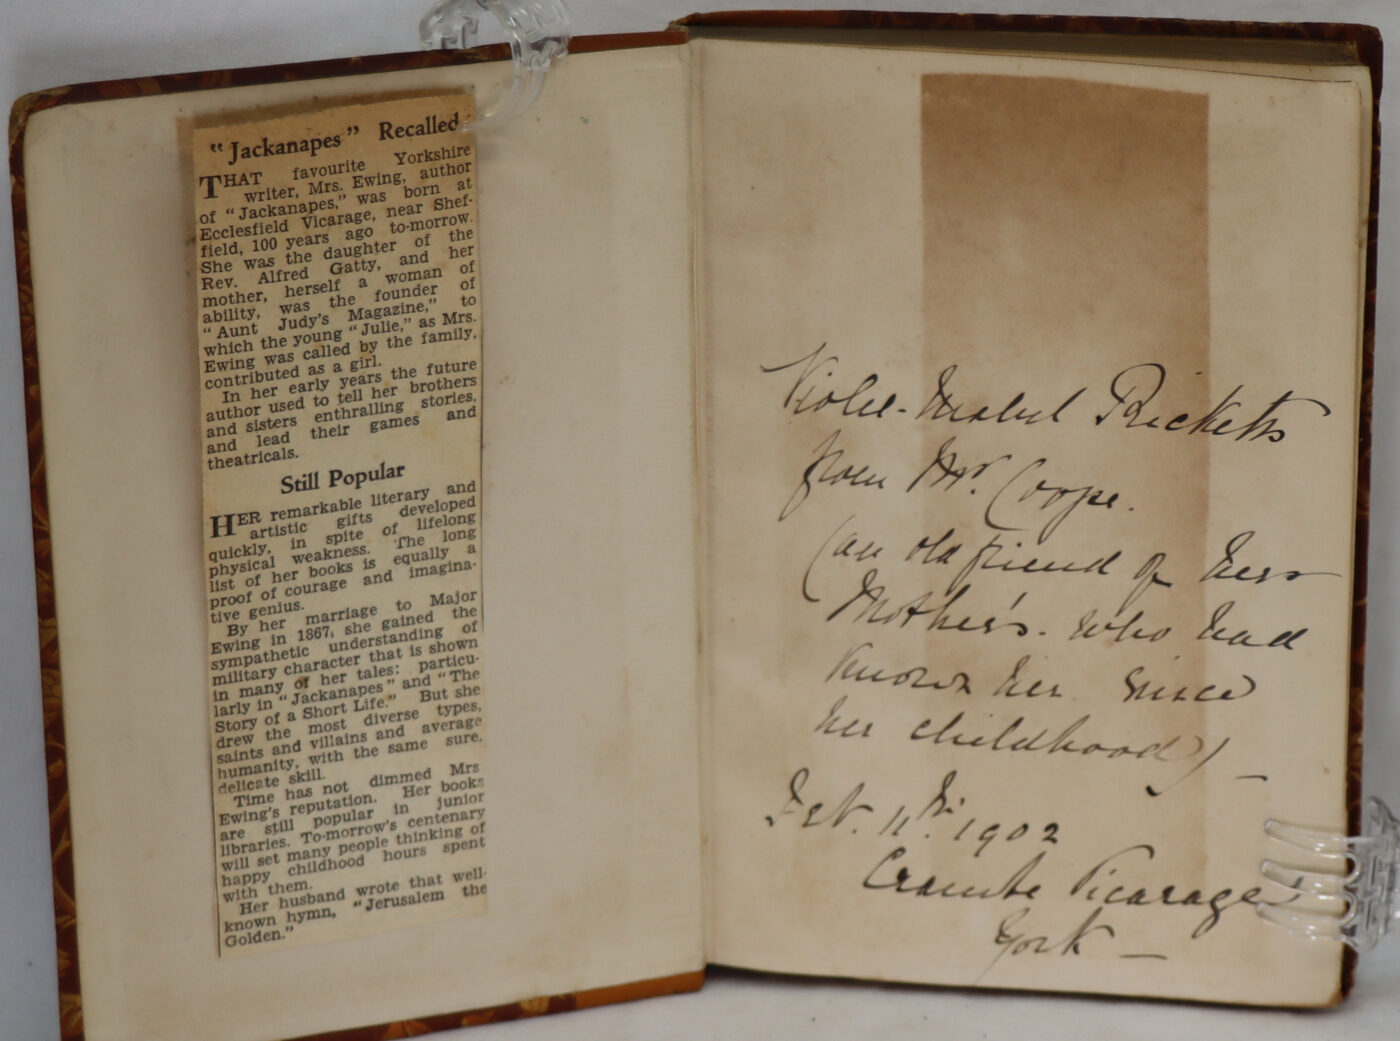 "Jackanapes" Recalled
THAT favourite Yorkshire
writer, Mrs. Ewing, author
of "Jackanapes," was born at
Ecclesfield Vicarage, near Shef-
field, 100 years ago to-morrow.
She was the daughter of the
Rev. Alfred Gatty, and her
mother, herself a woman of
ability, was the founder of
"Aunt Judy's Magazine," to
which the young "Julie," as Mrs.
Ewing was called by the family,
contributed as a girl.
In her early years the future
author used to tell her brothers
and sisters enthralling stories,
and lead their games and
theatricals.
Still Popular
HER remarkable literary and
artistic gifts developed
quickly, in spite of lifelong
physical weakness. The long
list of her books is equally a
proof of courage and imagina-
tive genius.
By her marriage to Major
Ewing in 1867, she gained the
sympathetic understanding of
military character that is shown
in many of her tales: particu-
larly in "Jackanapes" and "The
Story of a Short Life." But she
drew the most diverse types,
saints and villains and average
humanity, with the same sure,
delicate skill.
Time has not dimmed Mrs
Ewing's reputation. Her books
are still popular in junior
libraries. To-morrow's centenary
will set many people thinking of
happy childhood hours spent
with them.
Her husband wrote that well-
known hymn, "Jerusalem the
Golden."
Violet Mabel Ricketts
from Mr. Coope.
(an old friend of her
Mother's. who had
known her since
her childhood) –
Feb. 11th. 1902
Crambe Vicarage
York –